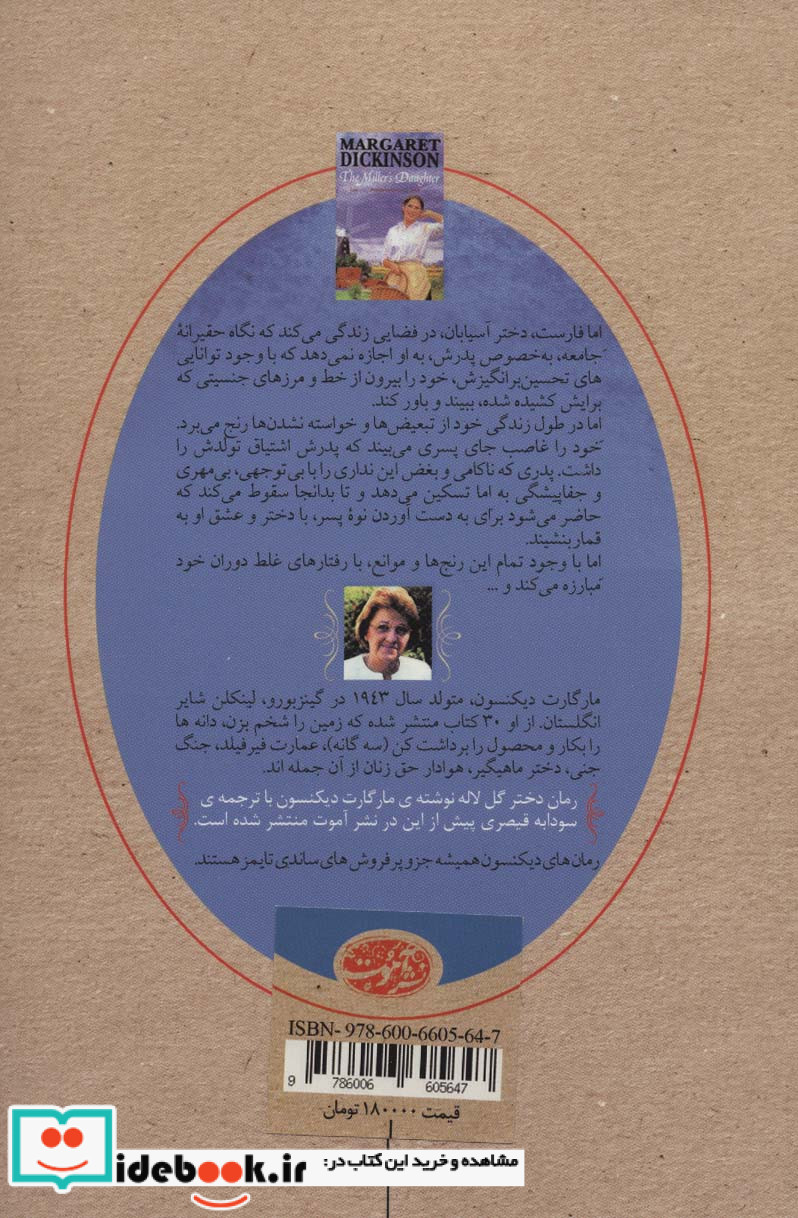 MARGARET
DICKINSON
The Miller's Daughter
اما فارست، دختر آسیابان، در فضایی زندگی می‌کند که نگاه حقیرانهٔ
جامعه، به‌خصوص پدرش، به او اجازه نمی‌دهد که با وجود توانایی
های تحسین‌برانگیزش، خود را بیرون از خط و مرزهای جنسیتی که
برایش کشیده شده، ببیند و باور کند.
اما در طول زندگی خود از تبعیض‌ها و خواسته نشدن‌ها رنج می‌برد.
خود را غاصب جای پسری می‌بیند که پدرش اشتیاق تولدش را
داشت. پدری که ناکامی و بغض این نداری را با بی‌توجهی، بی‌مهری
و جفاپیشگی به اما تسکین می‌دهد و تا بدانجا سقوط می‌کند که
حاضر می‌شود برای به دست آوردن نوهٔ پسر، با دختر و عشق او به
قمار بنشیند.
اما با وجود تمام این رنج‌ها و موانع، با رفتارهای غلط دوران خود
مبارزه می‌کند و ...
مارگارت دیکنسون، متولد سال ۱۹۴۳ در گینزبورو، لینکلن شایر
انگلستان. از او ۳۰ کتاب منتشر شده که زمین را شخم بزن، دانه ها
را بکار و محصول را برداشت کن (سه گانه)، عمارت فیرفیلد، جنگ
جنی، دختر ماهیگیر، هوادار حق زنان از آن جمله اند.
رمان دختر گل لاله نوشته ی مارگارت دیکنسون با ترجمه ی
سودابه قیصری پیش از این در نشر آموت منتشر شده است.
رمان‌های دیکنسون همیشه جزو پرفروش های ساندی تایمز هستند.
نشر آموت
ISBN- 978-600-6605-64-7
9 786006 605647
قیمت ۱۸۰۰۰۰ تومان
مشاهده و خرید این کتاب در:
idebook.ir